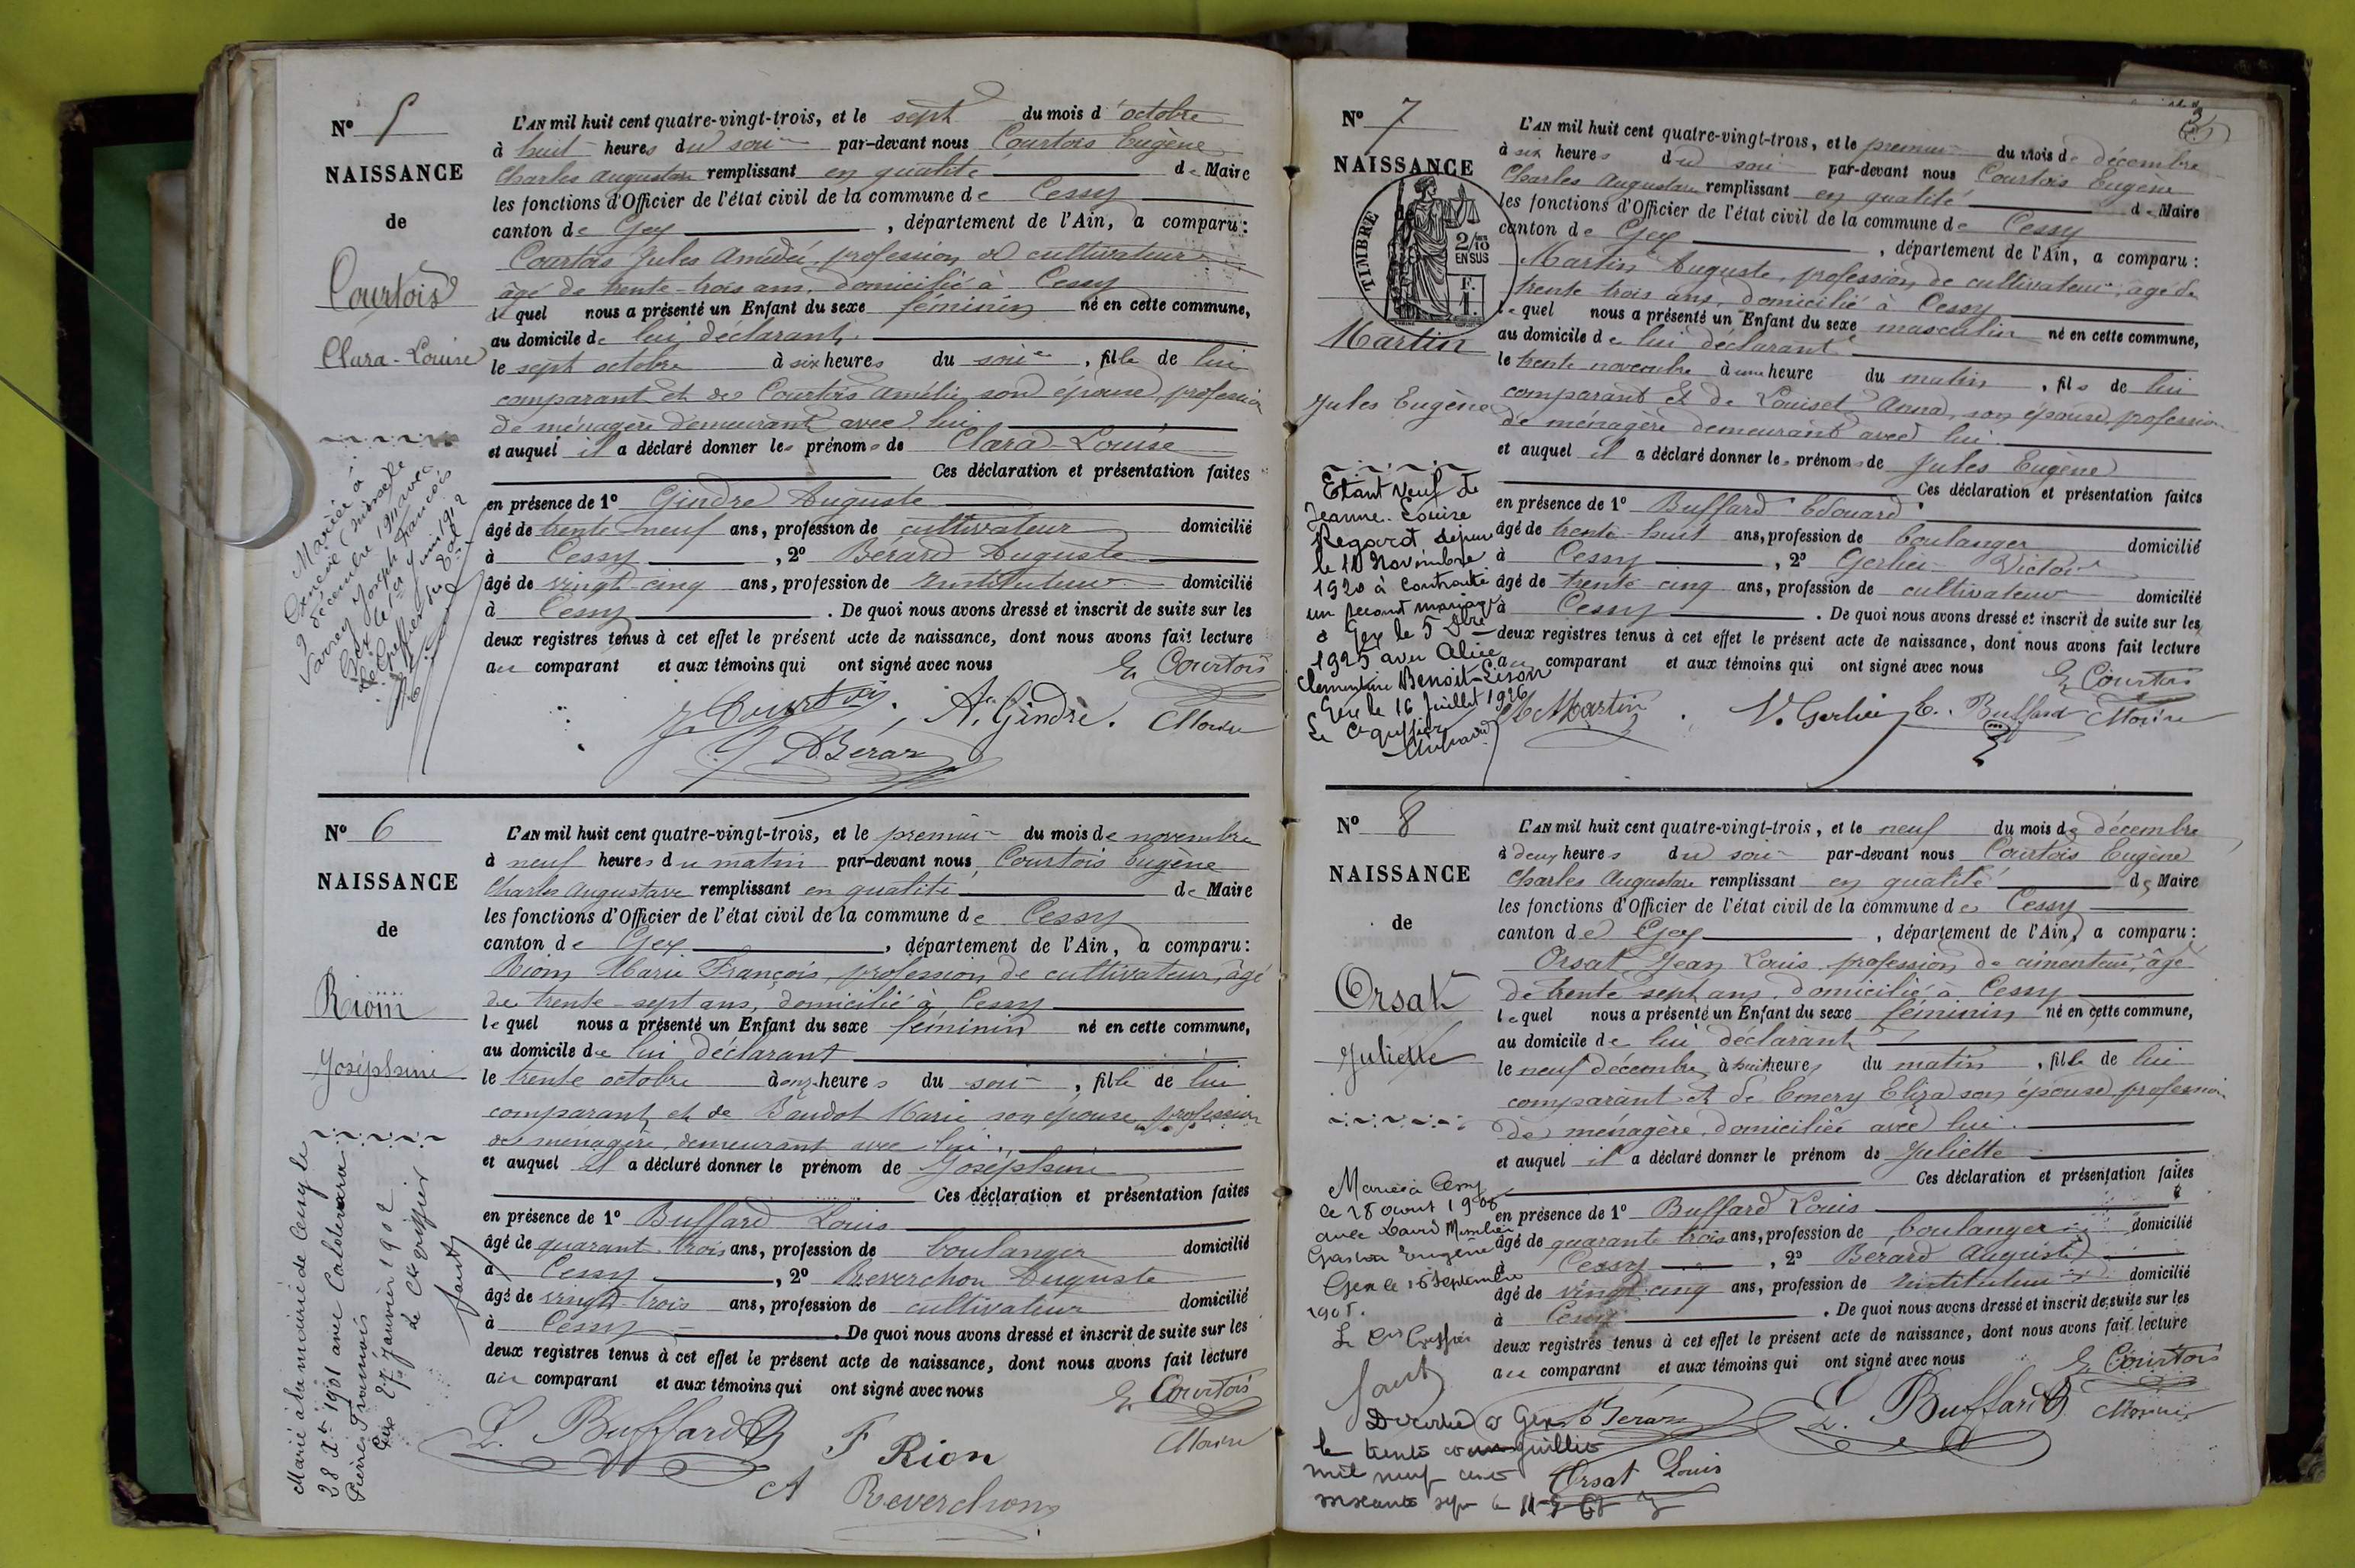 N° 5
NAISSANCE
de
Courtois
Clara-Louise
Mariée à
Genève (Suisse) le
9 décembre 1911 avec
Varrey Joseph François
Gex le 1er juin 1912
L'AN mil huit cent quatre-vingt-trois, et le sept du mois d'octobre
à huit heures du soir par-devant nous Courtois Eugène
Charles Augustave remplissant en qualité de Maire
les fonctions d'Officier de l'état civil de la commune de Cessy
canton de Gex, département de l'Ain, a comparu :
Courtois Jules Amédée, profession de cultivateur
âgé de trente-trois ans, domicilié à Cessy
lequel nous a présenté un Enfant du sexe féminin né en cette commune,
au domicile de lui déclarant.
le sept octobre à six heures du soir, fille de lui
comparant et de Courtois Amélie son épouse, profession
de ménagère demeurant avec lui
et auquel il a déclaré donner les prénoms de Clara-Louise
Ces déclaration et présentation faites
en présence de 1° Gindre Auguste
âgé de trente neuf ans, profession de cultivateur domicilié
à Cessy, 2° Berard Auguste
âgé de vingt cinq ans, profession de Instituteur domicilié
à Cessy. De quoi nous avons dressé et inscrit de suite sur les
deux registres tenus à cet effet le présent acte de naissance, dont nous avons fait lecture
au comparant et aux témoins qui ont signé avec nous
E. Courtois
J. Courtois. A. Gindre. Maire
A. Bérar
N° 6
NAISSANCE
de
Riom
Joséphine
Marié à la mairie de Cessy le
28 Xbre 1901 avec
Pierre François
Gex 27 janvier 1902
Le Cis Greffier
L'AN mil huit cent quatre-vingt-trois, et le premier du mois de novembre
à neuf heures du matin par-devant nous, Courtois Eugène
Charles Augustave remplissant en qualité de Maire
les fonctions d'Officier de l'état civil de la commune de Cessy
canton de Gex, département de l'Ain, a comparu :
Riom Marie François, profession de cultivateur, âgé
de trente-sept ans, domicilié à Cessy
lequel nous a présenté un Enfant du sexe féminin né en cette commune,
au domicile de lui déclarant
le trente octobre à onze heures du soir, fille de lui
comparant et de Baudot Marie son épouse, profession
de ménagère, demeurant avec lui.
et auquel il a déclaré donner le prénom de Joséphine
Ces déclaration et présentation faites
en présence de 1° Buffard Louis
âgé de quarant trois ans, profession de boulanger domicilié
à Cessy, 2° Reverchon Auguste
âgé de vingt-trois ans, profession de cultivateur domicilié
à Cessy. De quoi nous avons dressé et inscrit de suite sur les
deux registres tenus à cet effet le présent acte de naissance, dont nous avons fait lecture
au comparant et aux témoins qui ont signé avec nous
E. Courtois
L. Buffard F Rion Maire
A Reverchon
3
N° 7
NAISSANCE
TIMBRE
2/10 EN SUS
F. 1.
Martin
Jules Eugène
Etant veuf de
Jeanne-Louise
Regard depuis
le 10 Novembre
1920 à contracté
un second mariage
à Gex le 5 Xbre
1925 avec Alice
Clementine Benoit-Lison
Gex le 16 Juillet 1926
Le Cis greffier
L'AN mil huit cent quatre-vingt-trois, et le premier du mois de décembre
à six heures du soir par-devant nous Courtois Eugène
Charles Augustave remplissant en qualité de Maire
les fonctions d'Officier de l'état civil de la commune de Cessy
canton de Gex, département de l'Ain, a comparu :
Martin Auguste, profession de cultivateur, âgé de
trente trois ans, domicilié à Cessy
lequel nous a présenté un Enfant du sexe masculin né en cette commune,
au domicile de lui déclarant
le trente novembre à une heure du matin, fils de lui
comparant et de Louiset Anna, son épouse, profession
de ménagère demeurant avec lui.
et auquel il a déclaré donner les prénoms de Jules Eugène
Ces déclaration et présentation faites
en présence de 1° Buffard Edouard
âgé de trente-huit ans, profession de boulanger domicilié
à Cessy, 2° Gerlier Victor
âgé de trente cinq ans, profession de cultivateur domicilié
à Cessy. De quoi nous avons dressé et inscrit de suite sur les
deux registres tenus à cet effet le présent acte de naissance, dont nous avons fait lecture
au comparant et aux témoins qui ont signé avec nous
E. Courtois
Martin V. Gerlier E. Buffard Maire
N° 8
NAISSANCE
de
Orsat
Juliette
Mariée à Cessy
le 28 aout 1908
avec
Gaston Eugène
Gex le 16 septembre
Le Cis Greffier
Décédée à Gex
le trente juillet
mil neuf cent
soixante sept
L'AN mil huit cent quatre-vingt-trois, et le neuf du mois de décembre
à deux heures du soir par-devant nous Courtois Eugène
Charles Augustave remplissant en qualité de Maire
les fonctions d'Officier de l'état civil de la commune de Cessy
canton de Gex, département de l'Ain, a comparu :
Orsat Jean Louis, profession de cimenteur, âgé
de trente sept ans, domicilié à Cessy
lequel nous a présenté un Enfant du sexe féminin né en cette commune,
au domicile de lui déclarant
le neuf décembre à huit heures du matin, fille de lui
comparant et de Emery Eliza son épouse, profession
de ménagère, domiciliée avec lui.
et auquel il a déclaré donner le prénom de Juliette
Ces déclaration et présentation faites
en présence de 1° Buffard Louis
âgé de quarante trois ans, profession de boulanger domicilié
à Cessy, 2° Berard Auguste
âgé de vingt cinq ans, profession de Instituteur domicilié
à Cessy. De quoi nous avons dressé et inscrit de suite sur les
deux registres tenus à cet effet le présent acte de naissance, dont nous avons fait lecture
au comparant et aux témoins qui ont signé avec nous
E. Courtois
A Bérar L. Buffard Maire
Orsat Louis